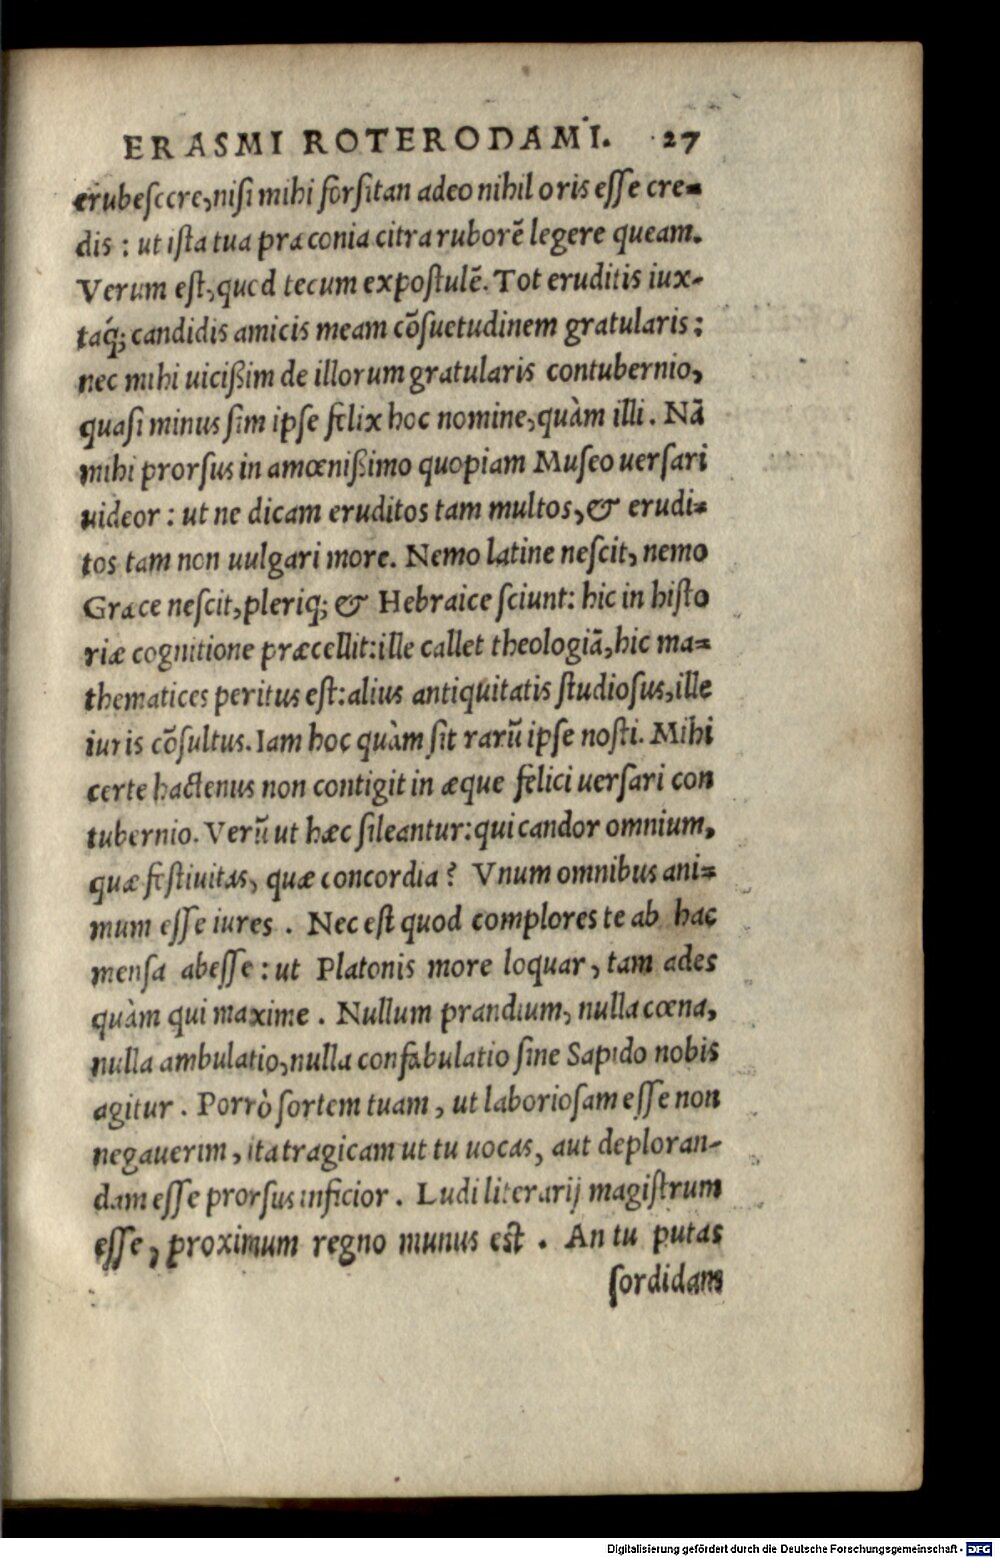 ERASMI ROTERODAMI. 27
erubescere, nisi mihi forsitan adeo nihil oris esse cre=
dis : ut ista tua præconia citra ruborē legere queam.
Verum est, quod tecum expostulē. Tot eruditis iux-
taq́; candidis amicis meam cōsuetudinem gratularis :
nec mihi uicißim de illorum gratularis contubernio,
quasi minus sim ipse felix hoc nomine, quàm illi. Nā
mihi prorsus in amœnißimo quopiam Museo uersari
uideor : ut ne dicam eruditos tam multos, & erudi=
tos tam non uulgari more. Nemo latine nescit, nemo
Græce nescit, pleriq; & Hebraice sciunt: hic in histo
riæ cognitione præcellit: ille callet theologiā, hic ma=
thematices peritus est: alius antiquitatis studiosus, ille
iuris cōsultus. Iam hoc quàm sit rarū ipse nosti. Mihi
certe hactenus non contigit in æque felici uersari con
tubernio. Verū ut hæc sileantur: qui candor omnium,
quæ festiuitas, quæ concordia ? Vnum omnibus ani=
mum esse iures . Nec est quod complores te ab hac
mensa abesse : ut Platonis more loquar, tam ades
quàm qui maxime . Nullum prandium, nulla cœna,
nulla ambulatio, nulla confabulatio sine Sapido nobis
agitur . Porrò sortem tuam, ut laboriosam esse non
negauerim, ita tragicam ut tu uocas, aut deploran-
dam esse prorsus inficior . Ludi literarij magistrum
esse, proximum regno munus est . An tu putas
sordidam
Digitalisierung gefördert durch die Deutsche Forschungsgemeinschaft - DFG